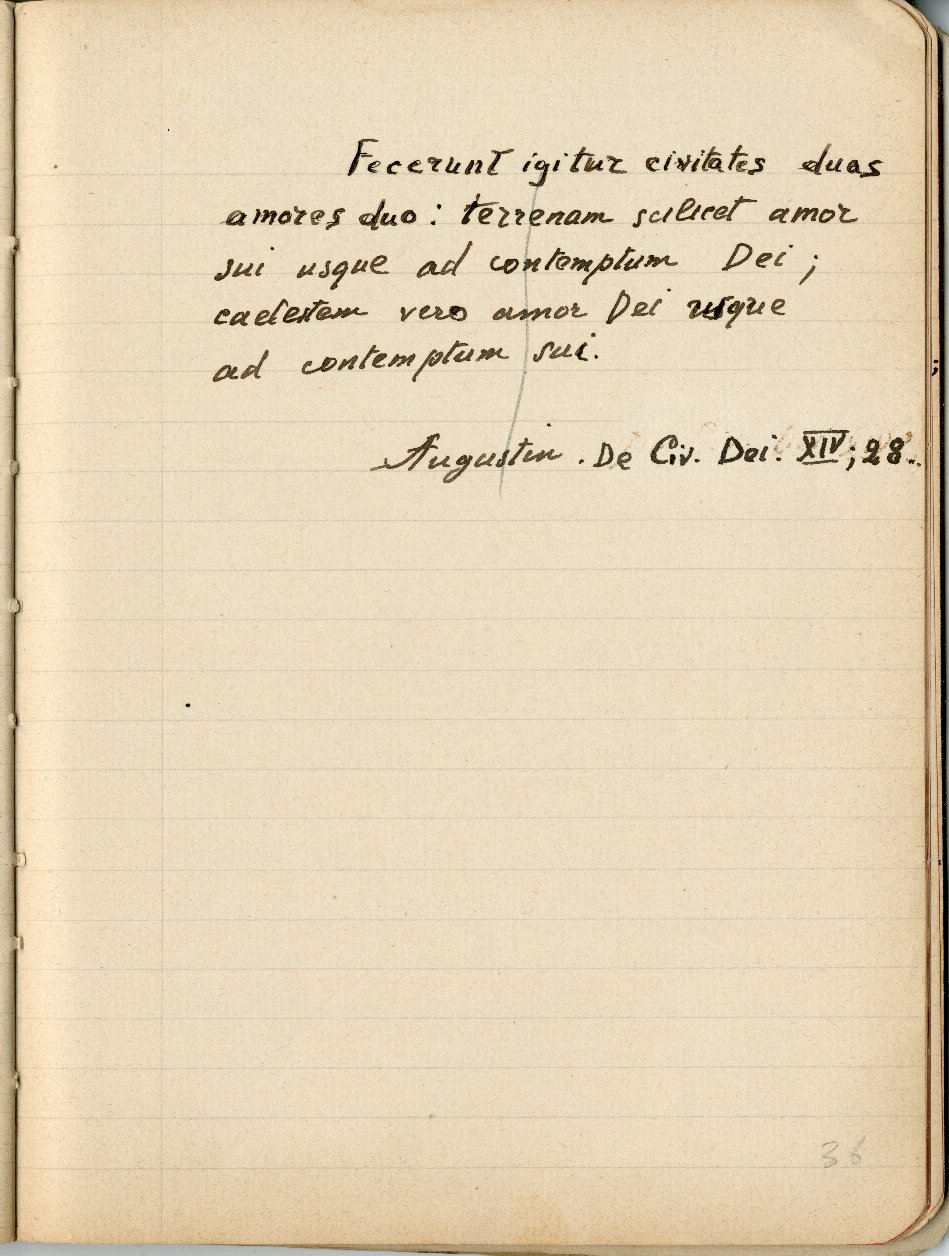 Fecerunt igitur civitates duas
amores duo : terrenam scilicet amor
sui usque ad contemptum Dei ;
caelestem vero amor Dei usque
ad contemptum sui.
Augustin . De Civ. Dei. XIV ; 28..